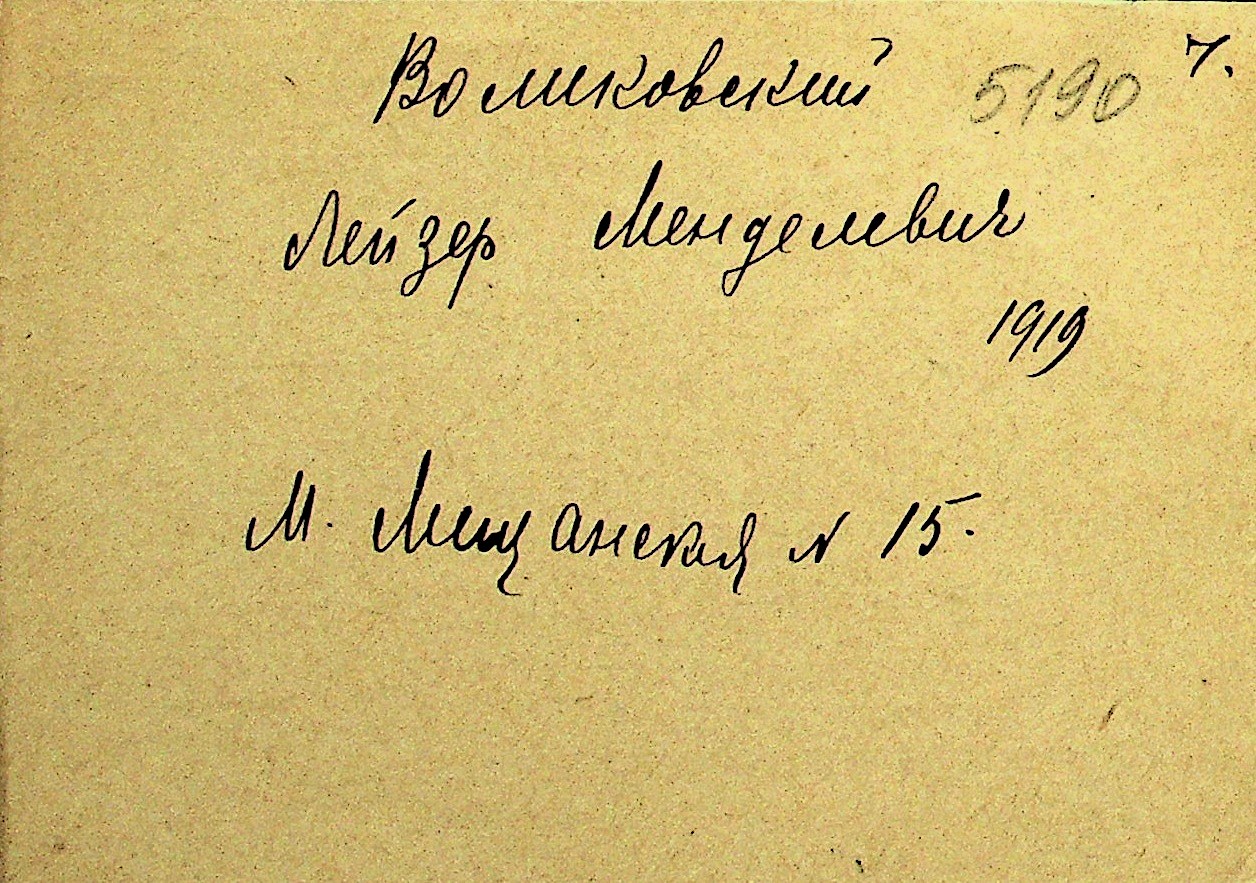 Воликовский 5190 7.
Лейзер Менделевич
1919
М. Мещанская N 15.